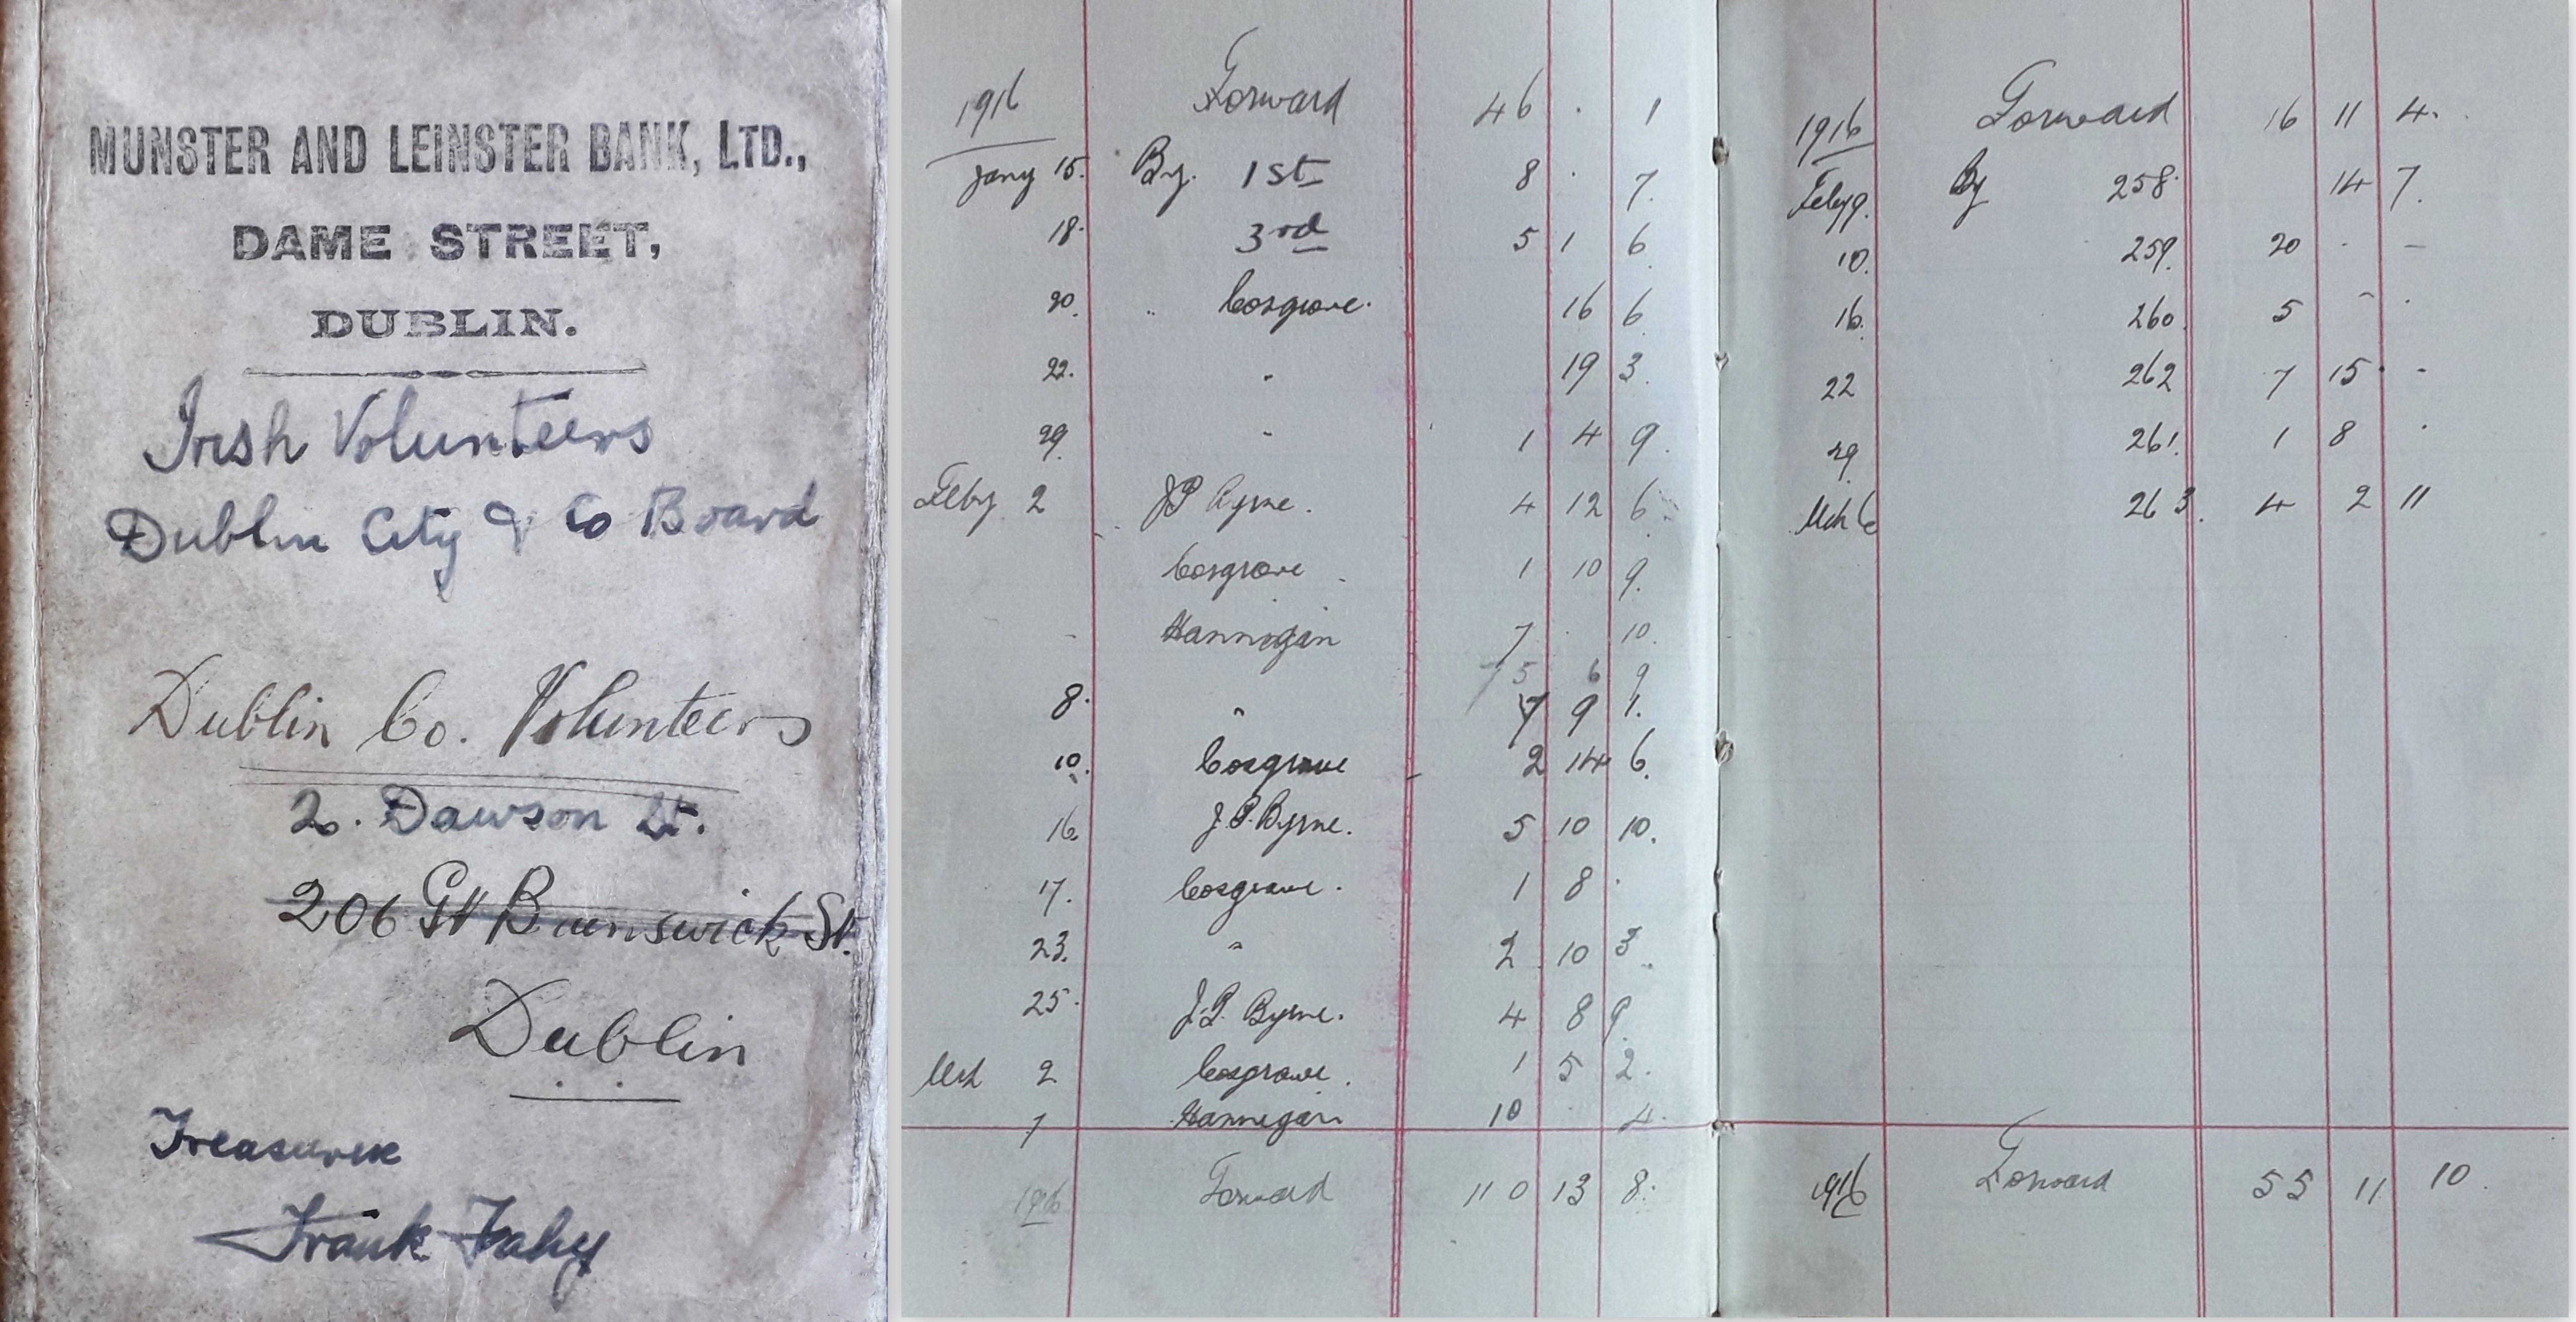 MUNSTER AND LEINSTER BANK, LTD.,
DAME STREET,
DUBLIN.
Irish Volunteers
Dublin City & Co Board
Dublin Co. Volunteers
2. Dawson St.
206 Gt Brunswick St.
Dublin
Treasurer
Frank Fahy
1916 Forward 46 . 1
Jany 15. By. 1st 8 . 7.
18. 3rd 5 1 6
20. " Cosgrove. 16 6
22. " 19 3.
29. " 1 4 9.
Feby 2 JP Byrne. 4 12 6
Cosgrove 1 10 9.
" Hannigan 7 . 10.
75 6 9
8. " 7 9 1.
10. Cosgrave 2 14 6.
16. J.P. Byrne. 5 10 10.
17. Cosgrave. 1 8 .
23. " 2 10 3.
25. J.P. Byrne. 4 8 9.
Mch 2 Cosgrave. 1 5 2.
7 Hannegan 10 . 4.
1916 Forward 110 13 8.
1916 Forward 16 11 4.
Feby 9. By 258. 14 7.
10. 259. 20 . -
16. 260. 5 - .
22 262 7 15 . -
29 261. 1 8 .
Mch 6 263. 4 2 11
1916 Forward 55 11 10.